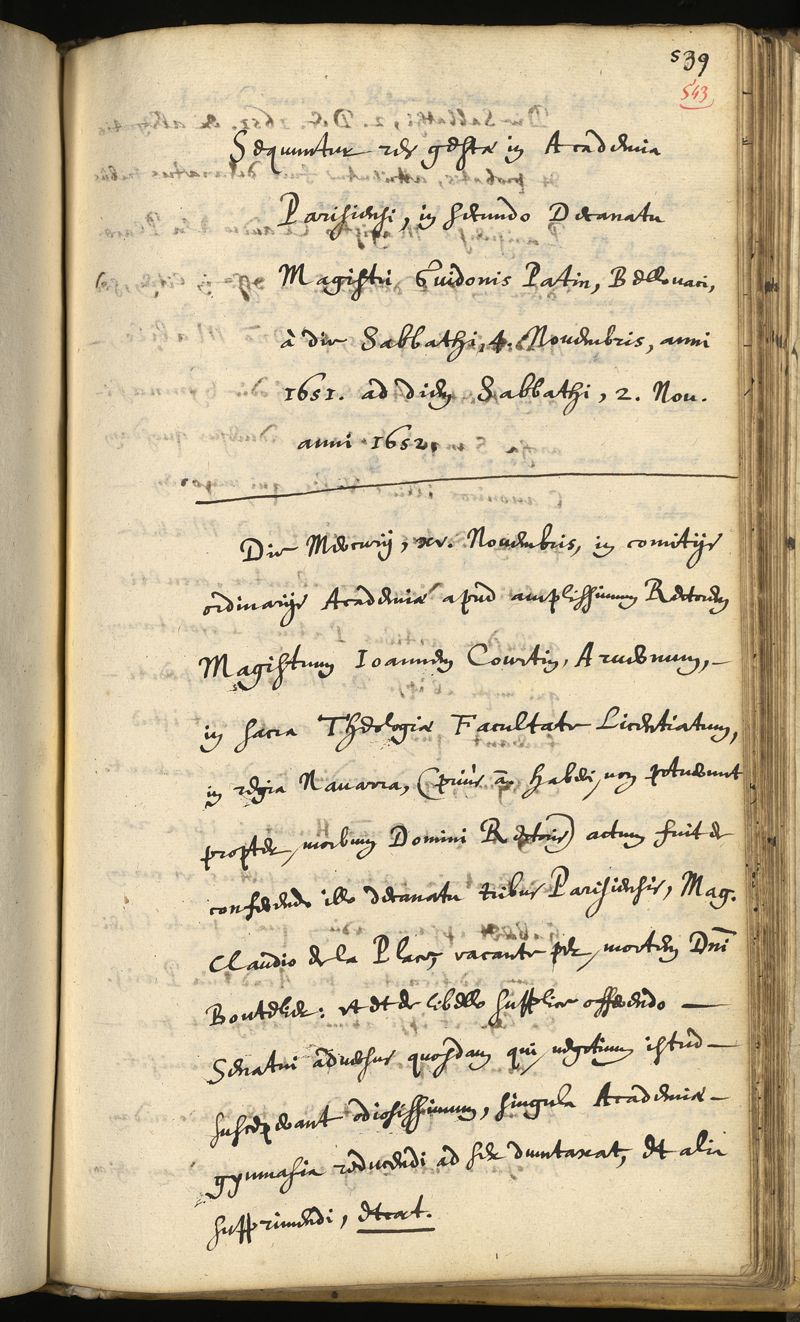 539
543
Sequuntur res gestæ in Academia
Parisiensi, in secundo Decanatu
Magistri Guidonis Patin, Bellovaci,
à die Sabbathi, 4. Novembris, anni
1651. ad diem Sabbathi, 2. Nov.
anni 1652.
Die Mercurij, xv. Novembris, in comitijs
ordinarijs Academiæ apud amplissimum Rectorem
Magistrum Ioannem Courtin, Arvernum,
in sacra Theologiæ Facultate Licentiatum,
in regia Navarra, (priùs .n. haberi non potuerunt
propter morbum Domini Rectoris) actum fuit de
conferendo illo decanatu tribus Parisiensis, Mag.
Claudio de la Place, vacante per mortem Dñi
Boutelier: et et de libello supplice offerendo
Senatui adversus quosdam qui negotium istud
susceperant odiosissimum, singula Academiæ
gymnasia reducendi ad sex duntaxat, et alia
supprimendi, etcæt.